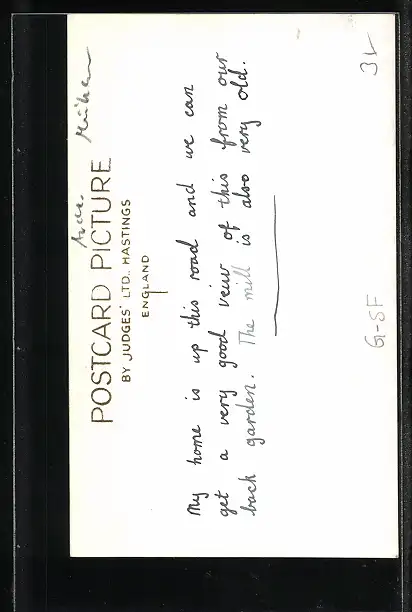 POSTCARD PICTURE
BY JUDGES' LTD., HASTINGS
ENGLAND
My home is up this road and we can
get a very good veiw of this from our
back garden. The mill is also very old.
G-SF